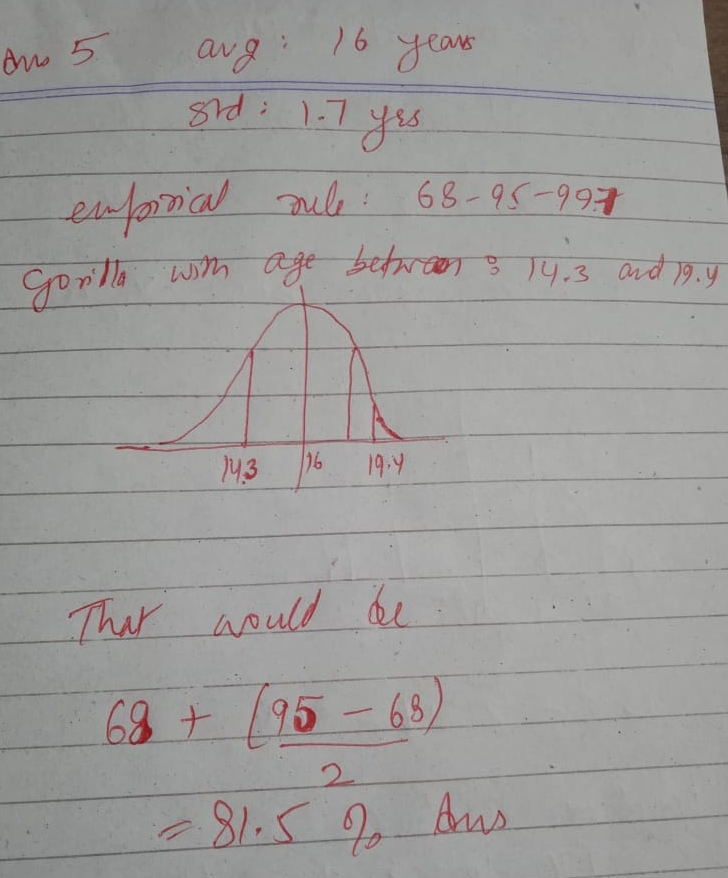 Ans 5 avg: 16 years
Std: 1.7 yrs
empirical rule: 68-95-99.7
Gorilla with age between: 14.3 and 19.4
14.3 16 19.4
That would be
68 + (95 - 68)
2
= 81.5 % Ans